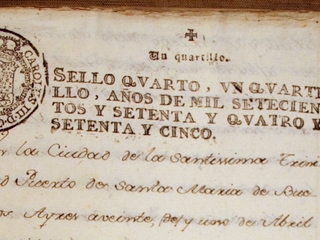 Un quartillo.
SELLO QVARTO, VN QVARTI
LLO, AÑOS DE MIL SETECIEN
TOS Y SETENTA Y QVATRO Y
SETENTA Y CINCO.
CAROLVS III D G
la Ciudad de la Santisima Trini
Puerto de Santa Maria de Bue
Ayres aveinte, y uno de Abril